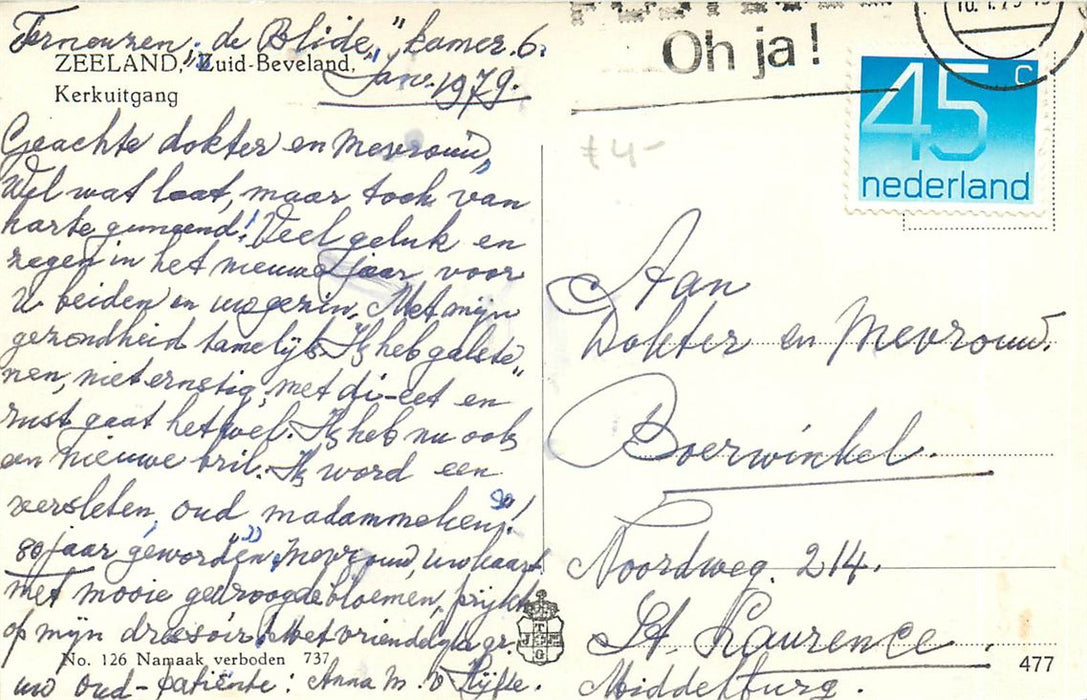 Terneuzen, "de Blide," kamer 6.
ZEELAND, Zuid-Beveland,
Kerkuitgang
Janv. 1979.
Geachte dokter en Mevrouw,
Wel wat laat, maar toch van
harte gemeend! Veel geluk en
zegen in het nieuwe jaar, voor
U beiden en uw gezin. Met mijn
gezondheid tamelijk. Ik heb galste"
nen, niet ernstig, met di-eet en
rust gaat het wel. Ik heb nu ook
een nieuwe bril. Ik word een
versleten, oud madammeken!
80 jaar geworden. Mevrouw, uw kaart
met mooie gedroogde bloemen, prijkt
op mijn dressoir! Met vriendelyke gr.
No. 126 Namaak verboden 737
uw oud-patiënte: Anna M. v
Oh ja!
10.1.79
45 c
nederland
£4-
Aan
Dokter en Mevrouw.
Boerwinkel.
Noordweg. 214.
St. Laurence.
Middelburg.
477